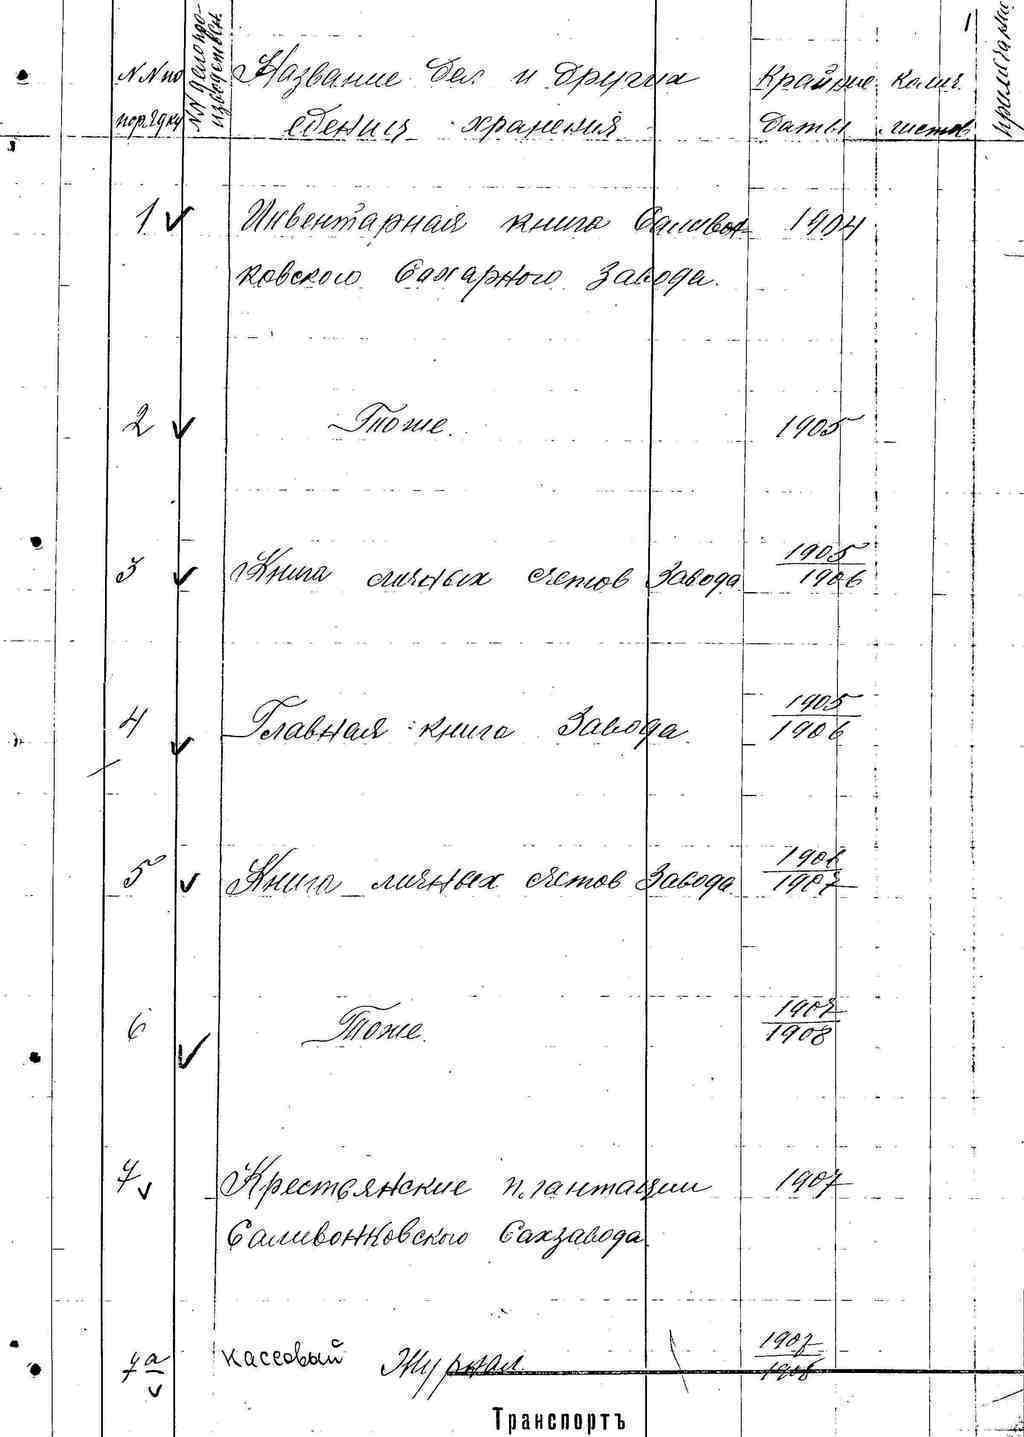 1
NN по порядку
NN делопроизводствен.
Название дел и других
едениц хранения
Крайние даты
колич. листов
примечание
1 Инвентарная книга Саливон-
ковского Сахарного Завода.
1904
2 Тоже.
1905
3 Книга личных счетов Завода
1905
1906
4 Главная книга Завода
1905
1906
5 Книга личных счетов Завода
1906
1907
6 Тоже.
1907
1908
7 Крестьянские плантации
Саливонковского Сахзавода
1907
7а кассовый Журнал
1907
1908
Транспортъ